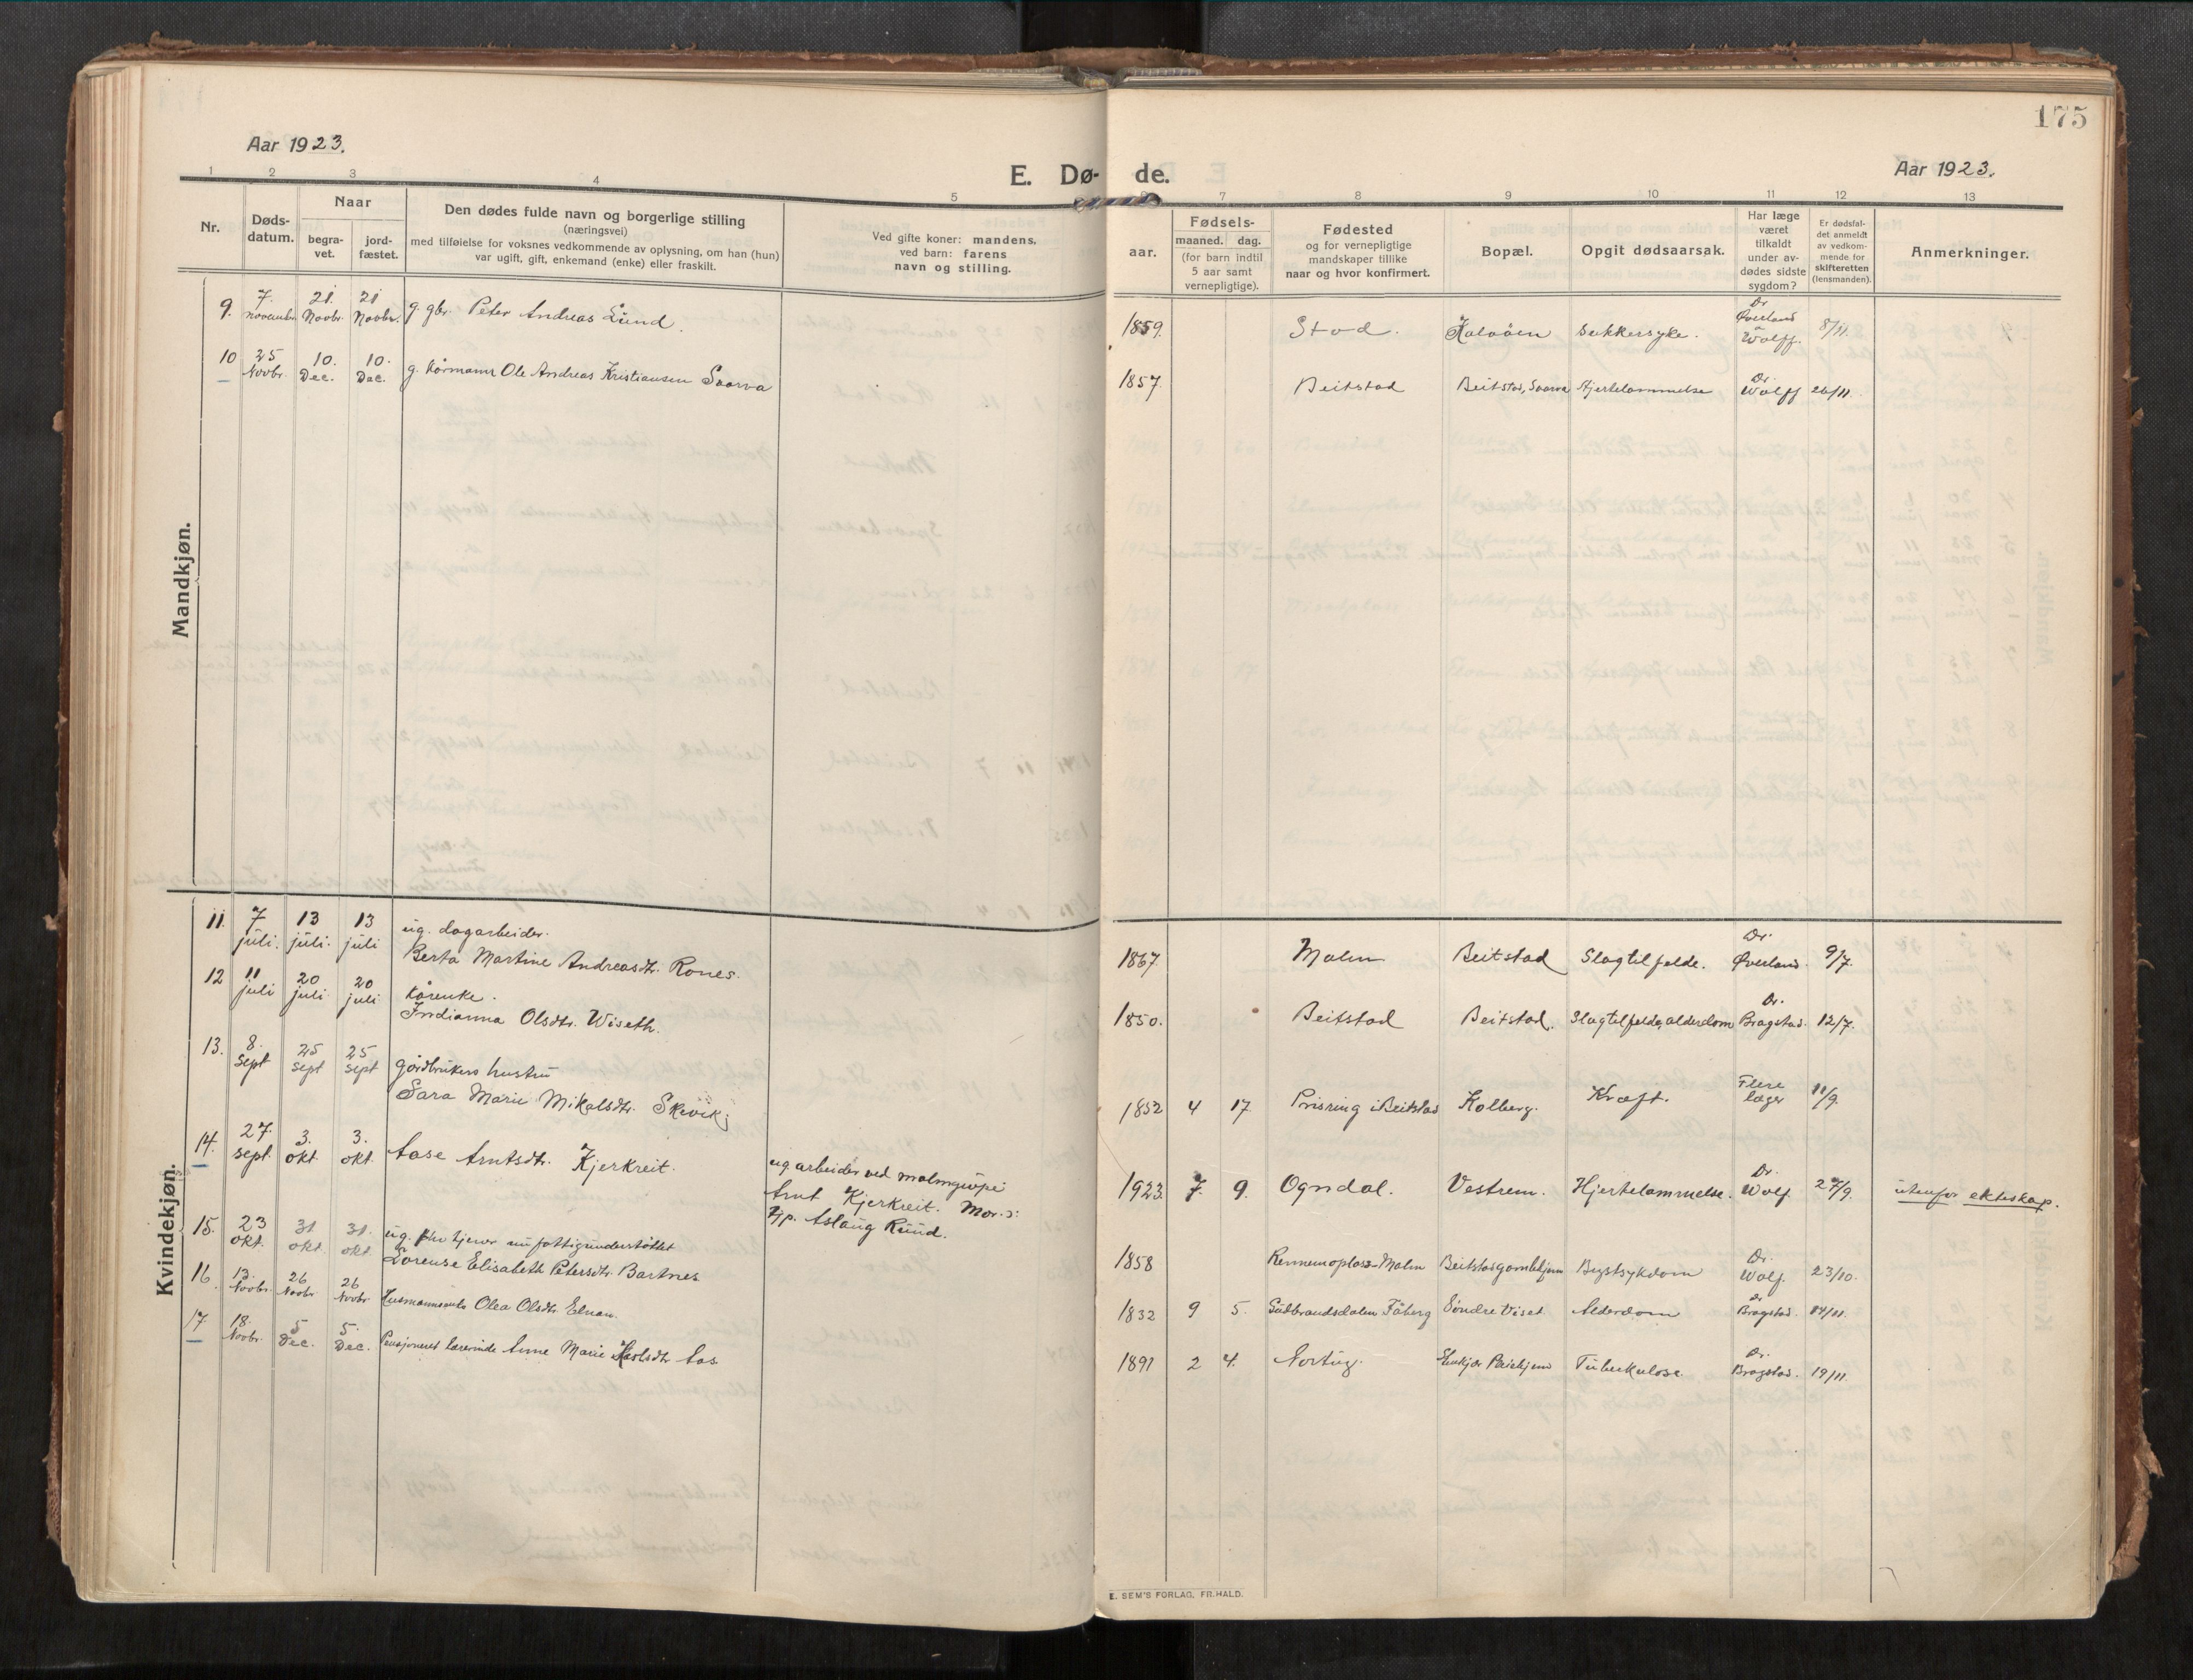 175
Aar 1923.
Aar 1923.
E. Dø- de.
1 2 3 4 5 7 8 9 10 11 12 13
Nr.
Døds-
datum.
Naar
begra-
vet.
jord-
fæstet.
Den dødes fulde navn og borgerlige stilling
(næringsvei)
med tilføielse for voksnes vedkommende av oplysning, om han (hun)
var ugift, gift, enkemand (enke) eller fraskilt.
Ved gifte koner: mandens,
ved barn: farens
navn og stilling.
Fødsels-
aar.
maaned. dag.
(for barn indtil
5 aar samt
vernepligtige).
Fødested
og for vernepligtige
mandskaper tillike
naar og hvor konfirmert.
Bopæl.
Opgit dødsaarsak.
Har læge
været
tilkaldt
under av-
dødes sidste
sygdom?
Er dødsfal-
det anmeldt
av vedkom-
mende for
skifteretten
(lensmanden).
Anmerkninger.
Mandkjøn.
9. 7. novembr. 21. Novbr. 21 Novbr. g. gbr. Peter Andreas Lund. 1859. Stod. sukkersyke. Dr Øverland Wolff. 8/11.
10 25 Novbr. 10. Dec. 10. Dec. g. kårmann Ole Andreas Kristiansen Saarva 1857. Beitstad Beitstad, Saarva Hjertelammelse Dr. Wolff 26/11.
Kvindekjøn.
11. 7 juli. 13 juli. 13 juli ug. dagarbeider.
Berta Martine Andreasdt. Rones. 1867. Malm Beitstad Slagtilfelde. Dr. Øverland. 9/7.
12 11 juli 20 juli 20 juli kårenke.
Indianna Olsdtr. Wiseth. 1850. Beitstad Beitstad. Slagtilfelde, alderdom Dr. Bragstad. 12/7.
13. 8. sept 25 sept 25 sept gårdbrukers hustru
Sara Marie Mikalsdtr. Skevik 1852 4 17. Prisring i Beitstad Kolberg. Kræft. Flere læger 11/9.
14. 27 sept. 3. okt. 3. okt. Aase Arntsdtr. Kjerkreit. ug arbeider ved malmgrupe
Arnt Kjerkreit. Mor:
Aslaug Ruud. 1923. 7. 9. Ogndal. Vestrem. Hjertelammelse. Dr. Wolf. 27/9. utenfor ekteskap.
15. 23 okt. 31. okt. 31. okt. ug. fhv tjener nu fattigunderstøttet
Lorense Elisabeth Petersdtr. Bartnes 1858 Rennemsplass-Malm Beitstad gamlehjem Brystsykdom Dr. Wolf. 23/10.
16 13. Novbr. 26 Novbr 26 Novbr Husmannsenke Olea Olsdtr. Elnan. 1832 9 5. Gudbrandsdalen Fåberg Søndre Viset Alderdom Dr Bragstad. 14/11.
17 18. Novbr. 5 Dec. 5. Dec. Pensjonert lærerinde Anne Marie Aas 1891 2 4. Nortug. Tuberkulose. Dr. Bragstad. 19/11.
E. SEM'S FORLAG, FR.HALD.